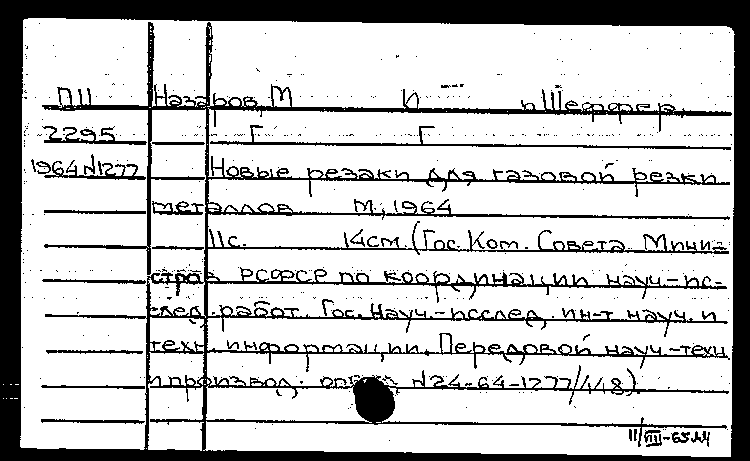 ПШ Назаров, М И пШеффер,
2295 Г Г
1964 N1277 Новые резаки для газовой резки
металлов М., 1964
11с. 14см. (Гос. Ком. Совета Мини=
стров РСФСР по координации науч-ис-
след. работ. Гос. Науч.-исслед. ин-т науч. и
техн. информации. Передовой науч-техн
и производ. опыт, N24-64-1277/448).